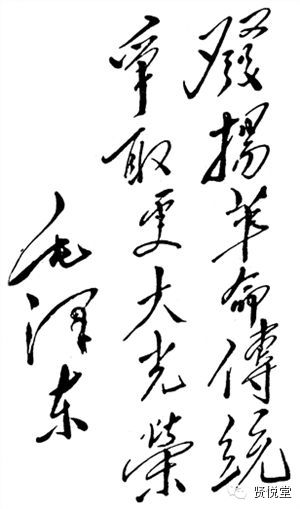 發揚革命傳統
爭取更大光榮
毛泽东
贤悦堂